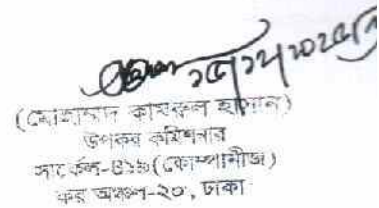 (মোহাম্মদ কামরুল হাসান)
উপকর কমিশনার
সার্কেল-৪১৯(কোম্পানীজ)
কর অঞ্চল-২০, ঢাকা